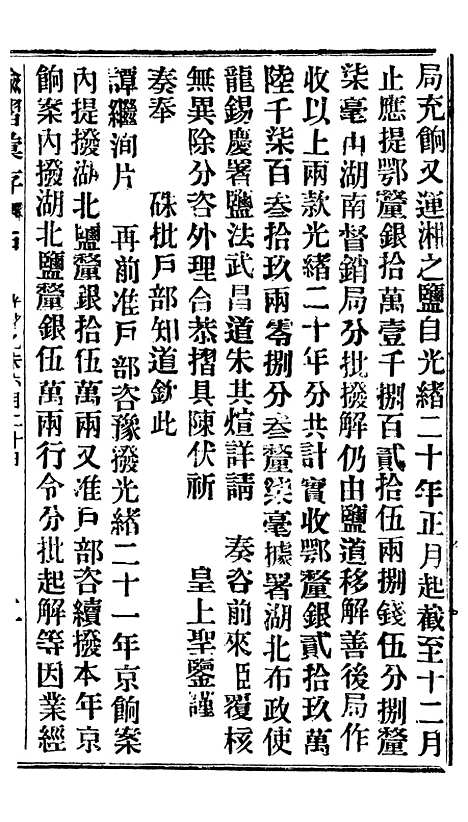 局充餉又運湘之鹽自光緒二十年正月起截至十二月
止應提鄂釐銀拾萬壹千捌百貳拾伍兩捌錢伍分捌釐
柒毫由湖南督銷局分批撥解仍由鹽道移解善後局作
收以上兩款光緒二十年分共計實收鄂釐銀貳拾玖萬
陸千柒百叁拾玖兩零捌分叁釐柒毫據署湖北布政使
龍錫慶署鹽法武昌道朱其煊詳請　奏咨前來臣覆核
無異除分咨外理合恭摺具陳伏祈　皇上聖鑒謹
奏奉　硃批戶部知道欽此
譚繼洵片　再前准戶部咨豫撥光緒二十一年京餉案
內提撥湖北鹽釐銀拾伍萬兩又准戶部咨續撥本年京
餉案內撥湖北鹽釐銀伍萬兩行令分批起解等因業經
諭摺彙存
六月二十日